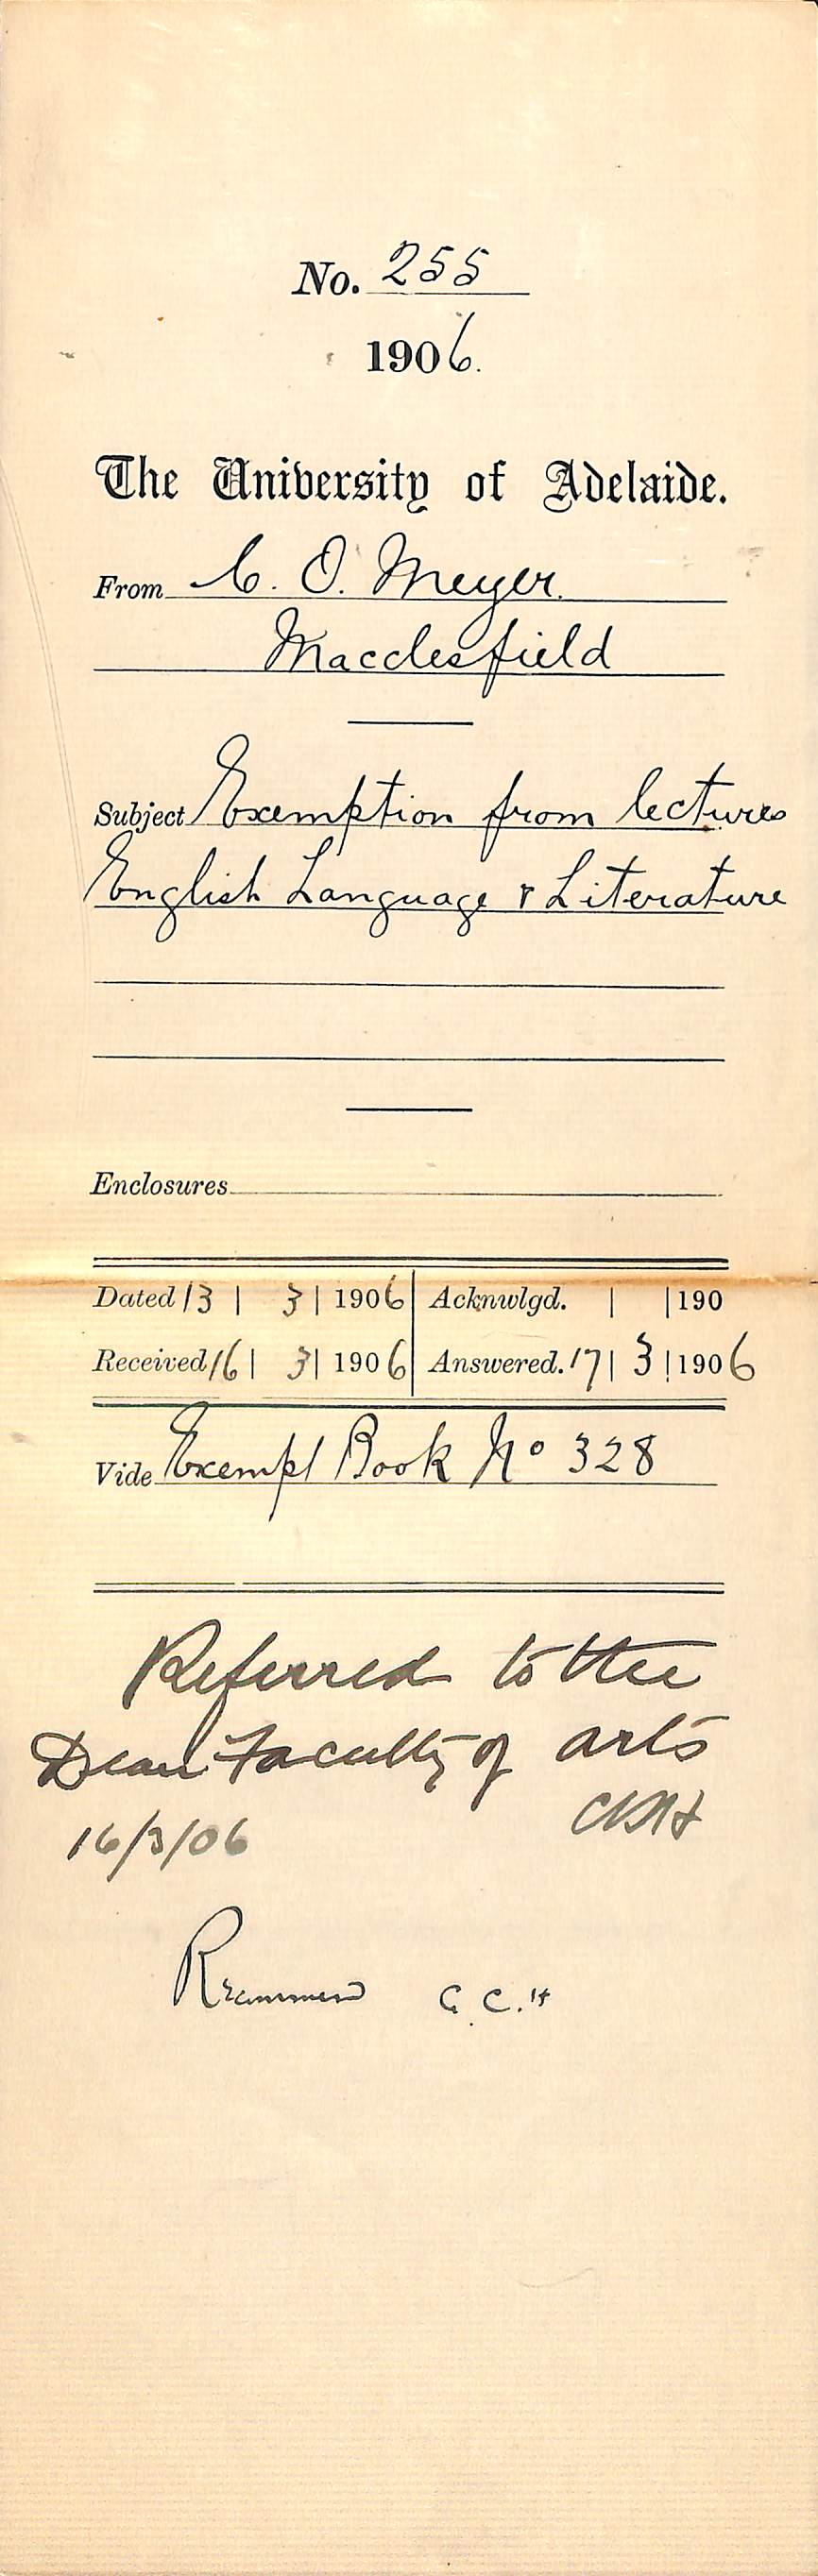 No. 255
1906.
The University of Adelaide.
From C. O. Meyer.
Macclesfield
Subject Exemption from lectures
English Language & Literature
Enclosures
Dated 13 | 3 | 1906 Acknwlgd. | | 190
Received 16 | 3 | 1906 Answered. 17 | 3 | 1906
Vide Exempt Book No 328
Referred to the
Dean Faculty of arts
16/3/06
G. C. H